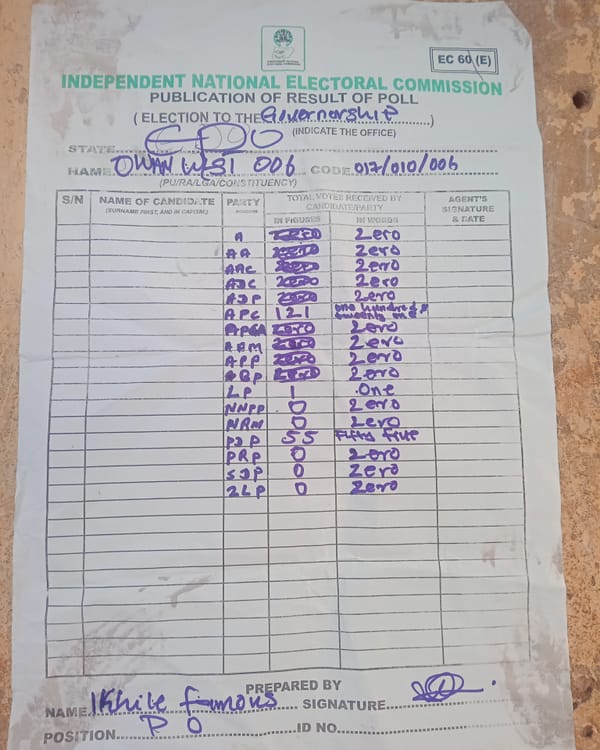 EC 60 (E)
INDEPENDENT NATIONAL ELECTORAL COMMISSION
PUBLICATION OF RESULT OF POLL
( ELECTION TO THE Governorship )
(INDICATE THE OFFICE)
STATE EDO
NAME OWAN WEST 006 CODE 017/010/006
(PU/RA/LGA/CONSTITUENCY)
S/N NAME OF CANDIDATE PARTY TOTAL VOTES RECEIVED BY CANDIDATE/PARTY AGENT'S SIGNATURE & DATE
(SURNAME FIRST, AND IN CAPITAL) IN FIGURES IN WORDS
A Zero
AA Zero
AAC Zero
ADC Zero
ADP Zero
APC 121 one hundred & twenty one
APGA Zero Zero
AAM Zero
APP Zero Zero
Zero
LP 1 One
NNPP 0 Zero
NRM 0 Zero
PDP 55 Fifty Five
PRP 0 Zero
SDP 0 Zero
ZLP 0 Zero
PREPARED BY
NAME Ikhile famous SIGNATURE
POSITION P O ID NO